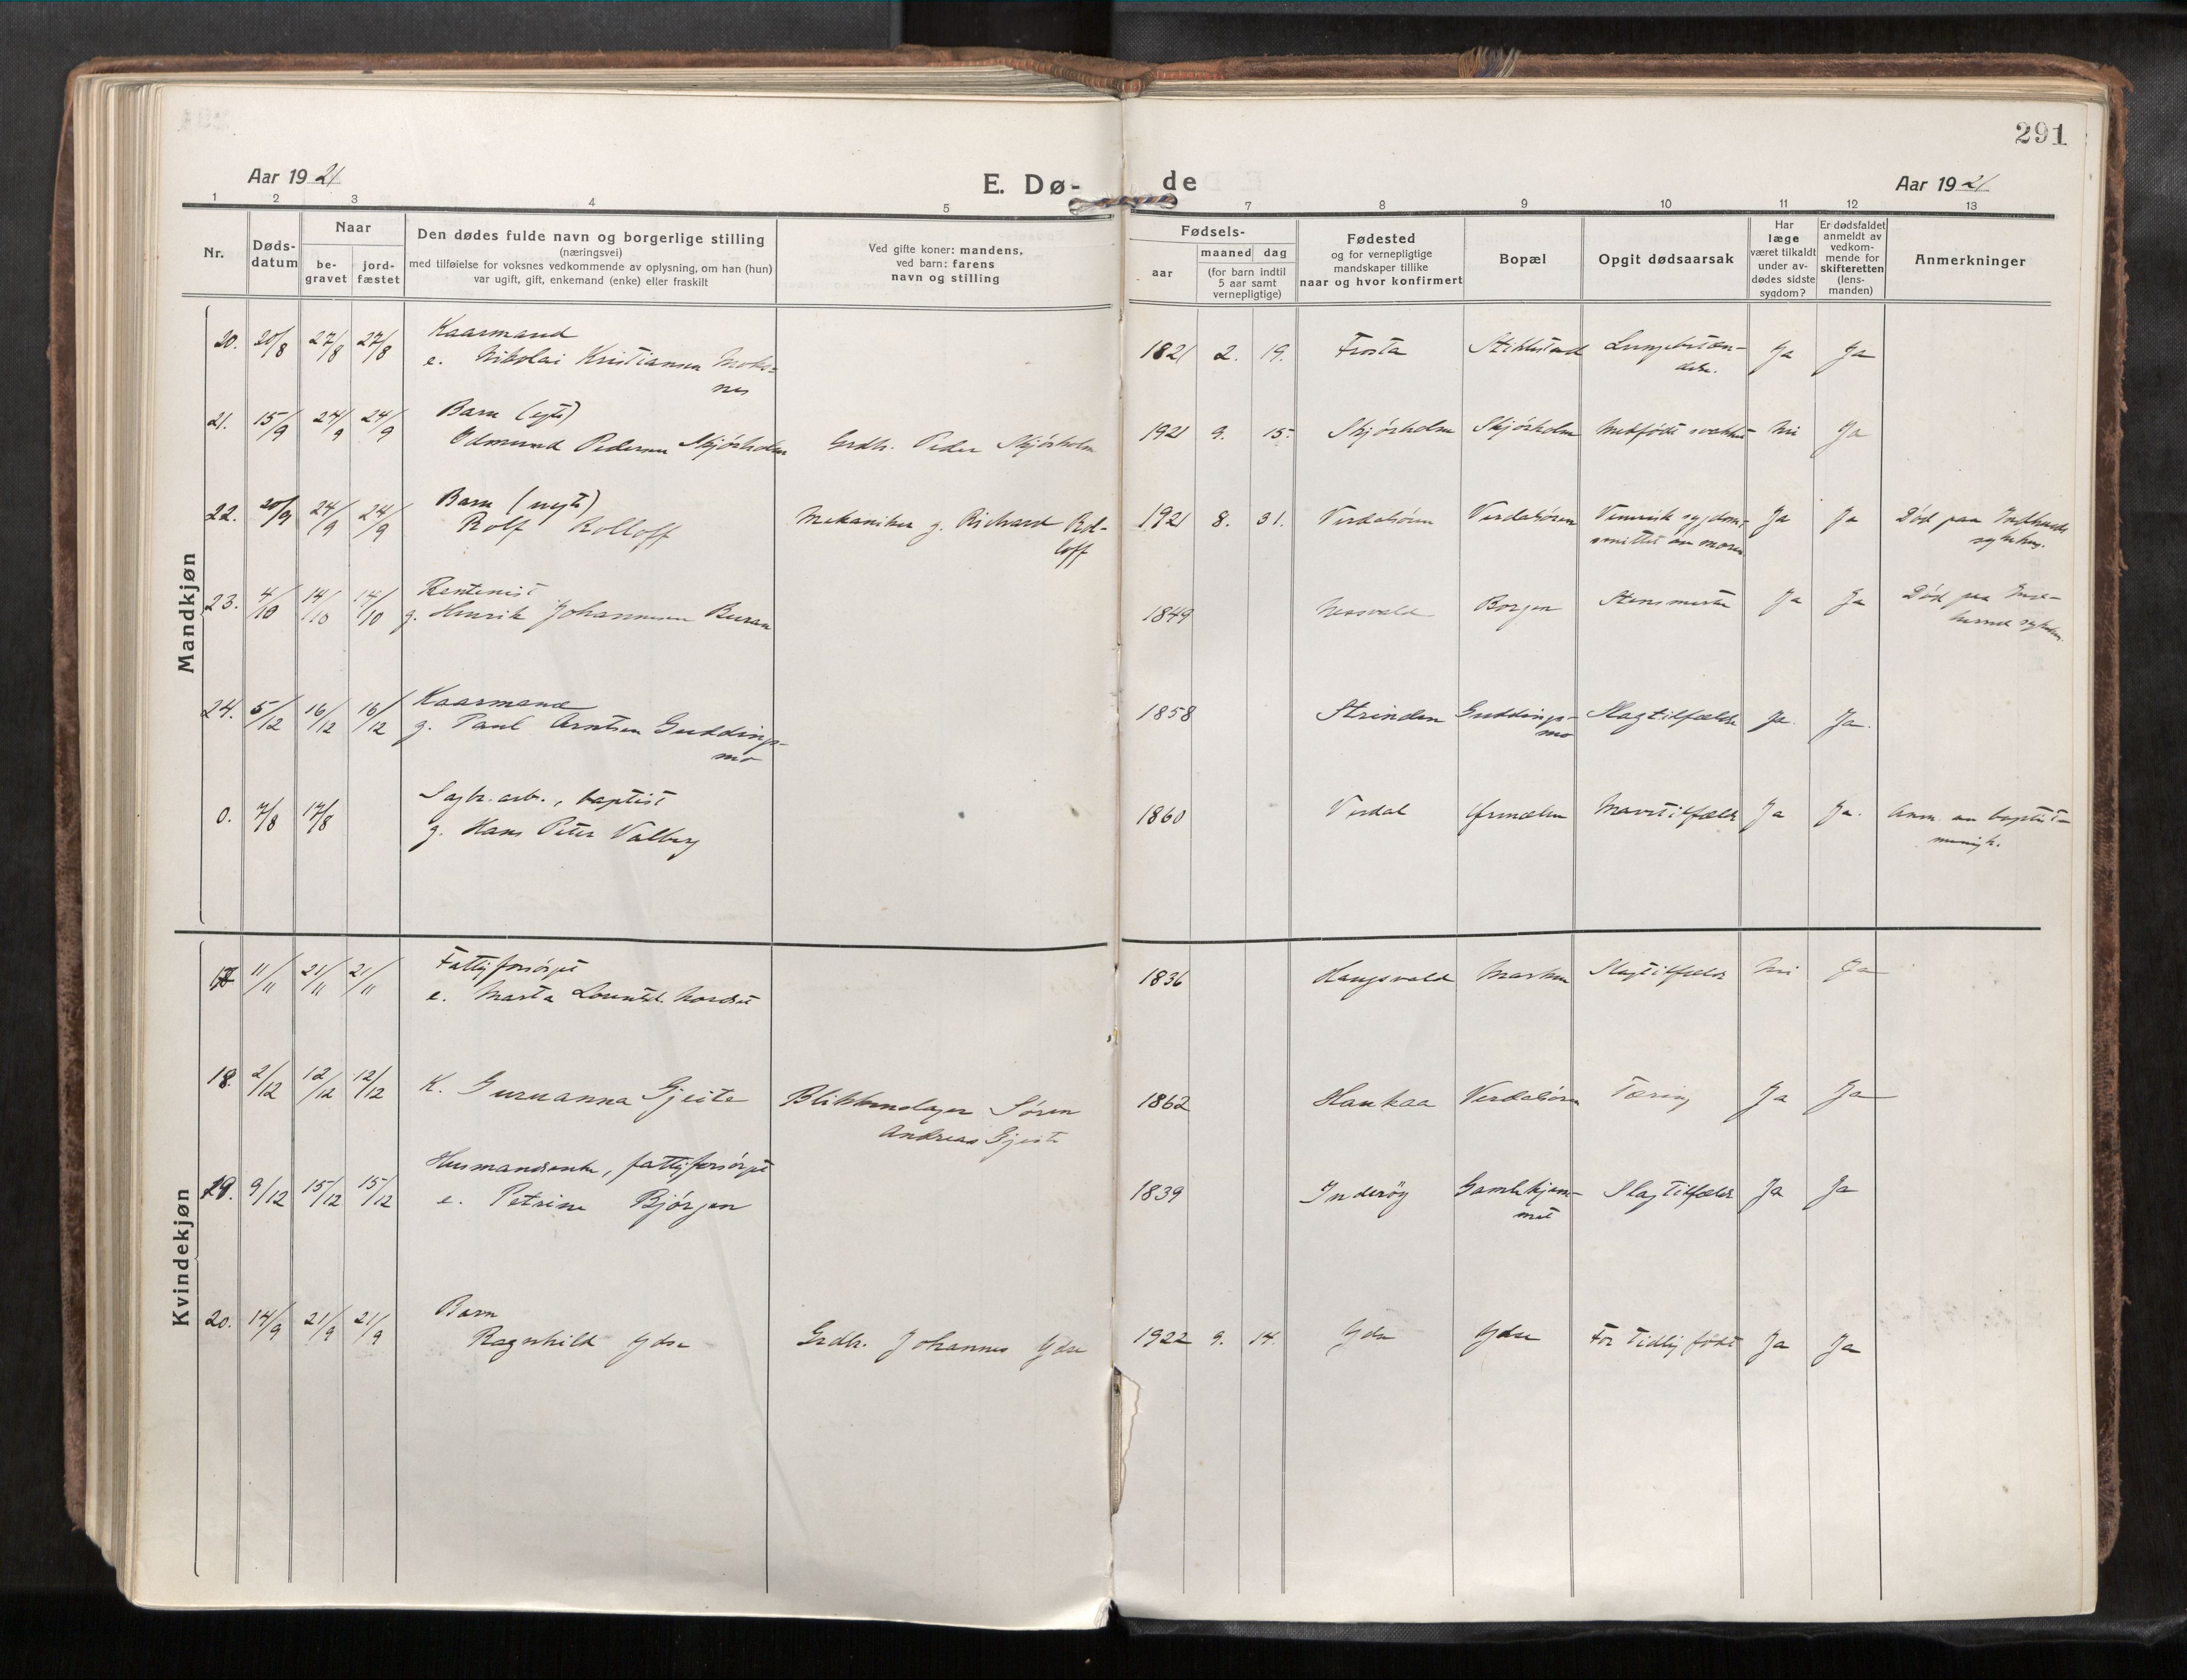 291
Aar 1921
E. Dø-
de
Aar 1921
1 2 3 4 5 7 8 9 10 11 12 13
Nr.
Døds-
datum
Naar
be-
gravet
jord-
fæstet
Den dødes fulde navn og borgerlige stilling
(næringsvei)
med tilføielse for voksnes vedkommende av oplysning, om han (hun)
var ugift, gift, enkemand (enke) eller fraskilt
Ved gifte koner: mandens,
ved barn: farens
navn og stilling
Fødsels-
aar
maaned dag
(for barn indtil
5 aar samt
vernepligtige)
Fødested
og for vernepligtige
mandskaper tillike
naar og hvor konfirmert
Bopæl
Opgit dødsaarsak
Har
læge
været tilkaldt
under av-
dødes sidste
sygdom?
Er dødsfaldet
anmeldt av
vedkom-
mende for
skifteretten
(lens-
manden)
Anmerkninger
Mandkjøn
Kaarmand
20. 20/8 27/8 27/8 e. Nikolai Kristiansen Moks- 1821 2. 19. Frosta Stiklestad Lungebetæn- Ja Ja
nes delse.
Barn (egte)
21. 15/9 24/9 24/9 Odmund Pedersen Skjørholm Grdbr. Peder Skjørholm 1921 9. 15. Skjørholm Skjørholm Medfødt svakhet Nei Ja
Barn (uegte)
22. 20/9 24/9 24/9 Rolf Rolloff Mekaniker g. Richard Rol- 1921 8. 31. Verdalsøren Verdalsøren Venerisk sygdom, Ja Ja Død paa Indherreds
loff smittet av moren sykehus.
Rentenist
23. 4/10 14/10 14/10 g. Henrik Johannesen Buran 1849 Nessvald Borgen Stensmerter Ja Ja Død paa Inn-
herred sykehus.
Kaarmand
24. 5/12 16/12 16/12 g. Paul Arntsen Guddings- 1858 Strinden Guddings- Slagtilfælde Ja. Ja.
mo mo
Sagbr. arb., baptist
0. 7/8 17/8 g. Hans Peter Valberg 1860 Verdal Ørmælen Mavetilfælde Ja Ja. Anm. av baptist-
menigh.
Kvindekjøn
Fattigforsørget
17 11/11 21/11 21/11 e. Marta Lorentsd. Nordset 1836 Haugsvald Marken Slagtilfælde Nei Ja
18. 2/12 12/12 12/12 K. Guruanna Gjeite Blikkenslager Søren 1862 Haukaa Verdalsøren Tæring Ja Ja
Andreas Gjeite
Husmandsenke, fattigforsørget
19. 9/12 15/12 15/12 e. Petrine Bjørgen 1839 Inderøy Gamlehjem- Slagtilfælde Ja Ja
met
Barn
20. 14/9 21/9 21/9 Ragnhild Ydse Grdbr. Johannes Ydse 1922 9. 14. Ydse Ydse For tidlig født Ja Ja